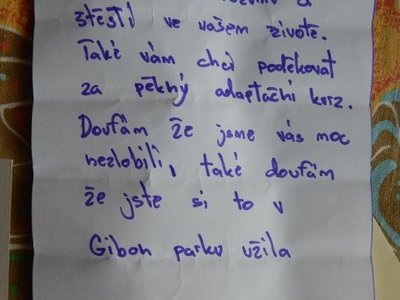 štěstí ve vašem životě.
Také vám chci poděkovat
za pěkný adaptační kurz.
Doufám že jsme vás moc
nezlobili, také doufám
že jste si to v
Gibon parku užila